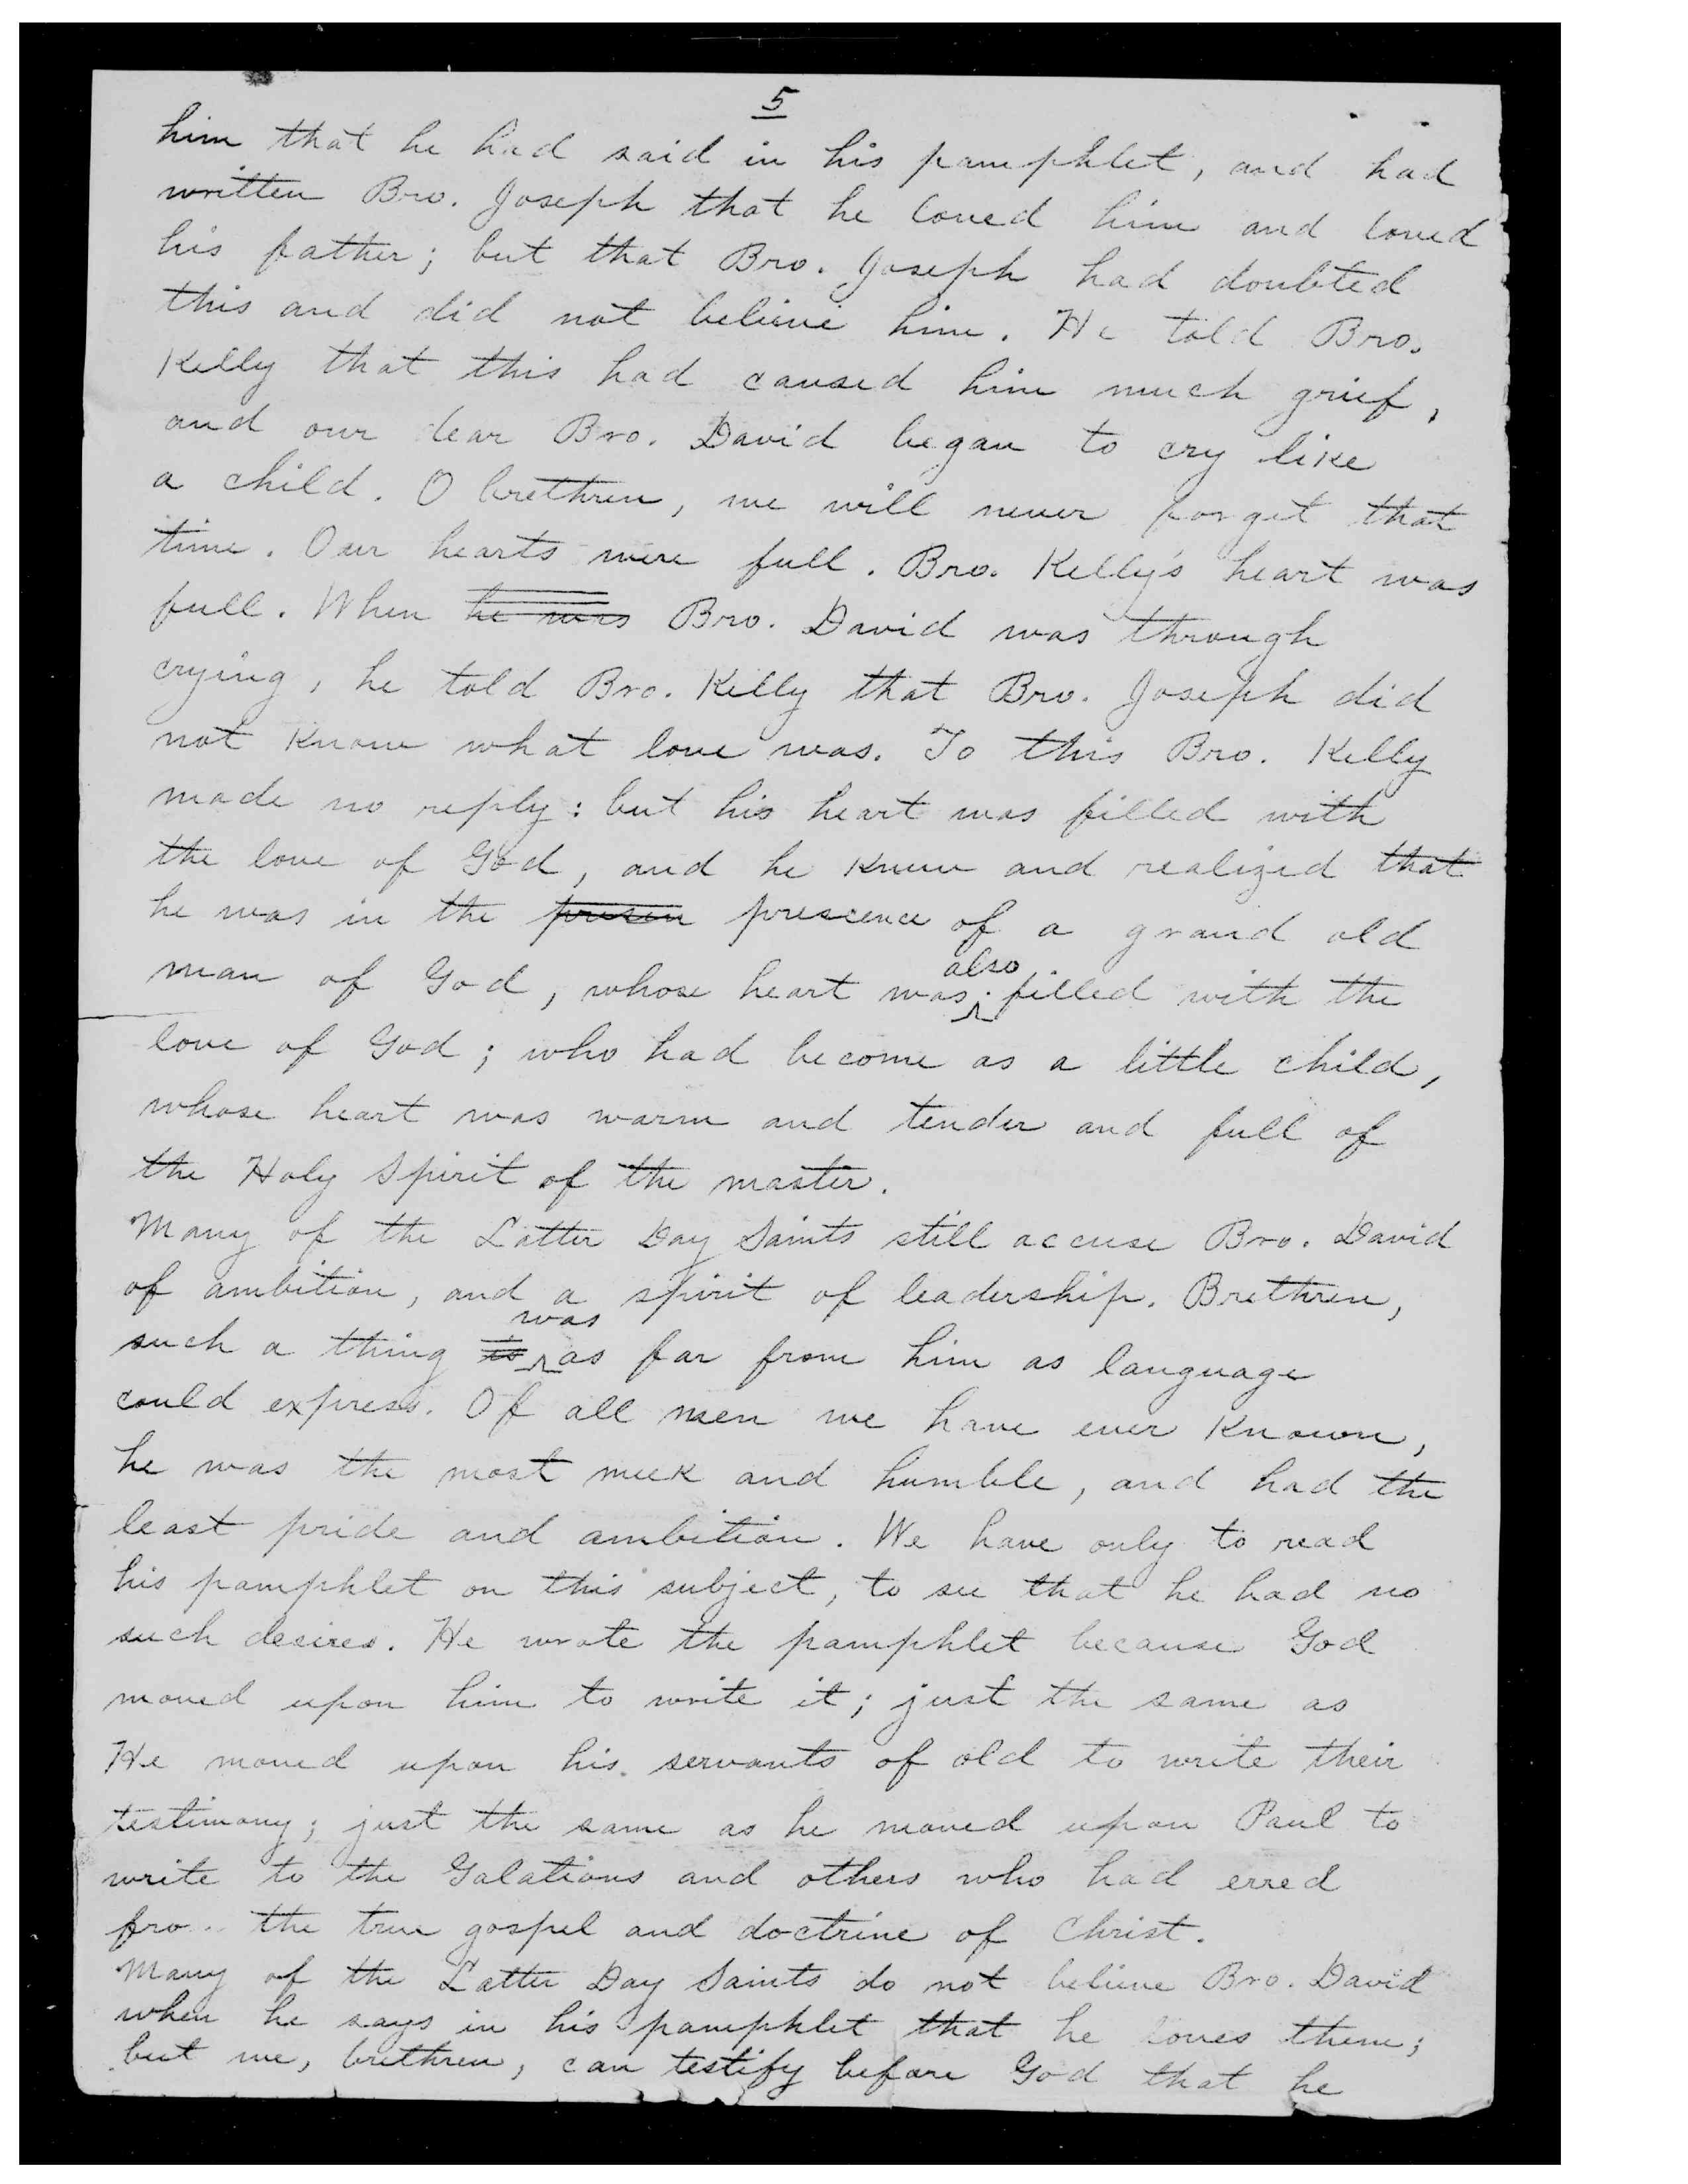 5
him that he had said in his pamphlet, and had
written Bro. Joseph that he loved him and loved
his father; but that Bro. Joseph had doubted
this and did not believe him. He told Bro.
Kelly that this had caused him much grief,
and our dear Bro. David began to cry like
a child. O brethren, we will never forget that
time. Our hearts were full. Bro. Kelly's heart was
full. When he was Bro. David was through
crying, he told Bro. Kelly that Bro. Joseph did
not know what love was. To this Bro. Kelly
made no reply: but his heart was filled with
the love of God, and he knew and realized that
he was in the presen prescence of a grand old
also
man of God, whose heart was filled with the
love of God; who had become as a little child,
whose heart was warm and tender and full of
the Holy Spirit of the master.
Many of the Latter Day Saints still accuse Bro. David
of ambition, and a spirit of leadership. Brethren,
was
such a thing is as far from him as language
could express. Of all men we have ever known,
he was the most meek and humble, and had the
least pride and ambition. We have only to read
his pamphlet on this subject, to see that he had no
such desires. He wrote the pamphlet because God
moved upon him to write it; just the same as
He moved upon his servants of old to write their
testimony; just the same as he moved upon Paul to
write to the Galations and others who had erred
fro the true gospel and doctrine of Christ.
Many of the Latter Day Saints do not believe Bro. David
when he says in his pamphlet that he loves them;
but we, brethren, can testify before God that he